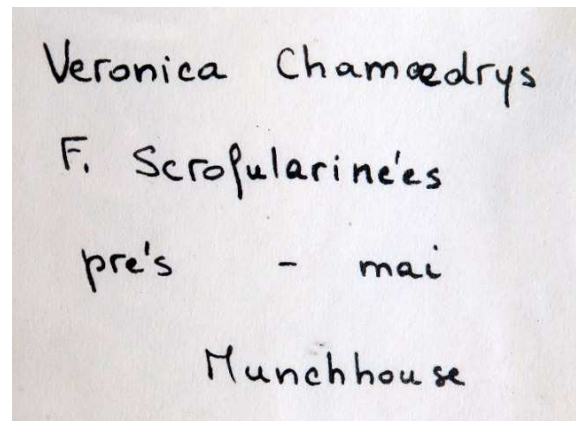 Veronica Chamædrys
F. Scrofularinées
prés - mai
Munchhouse